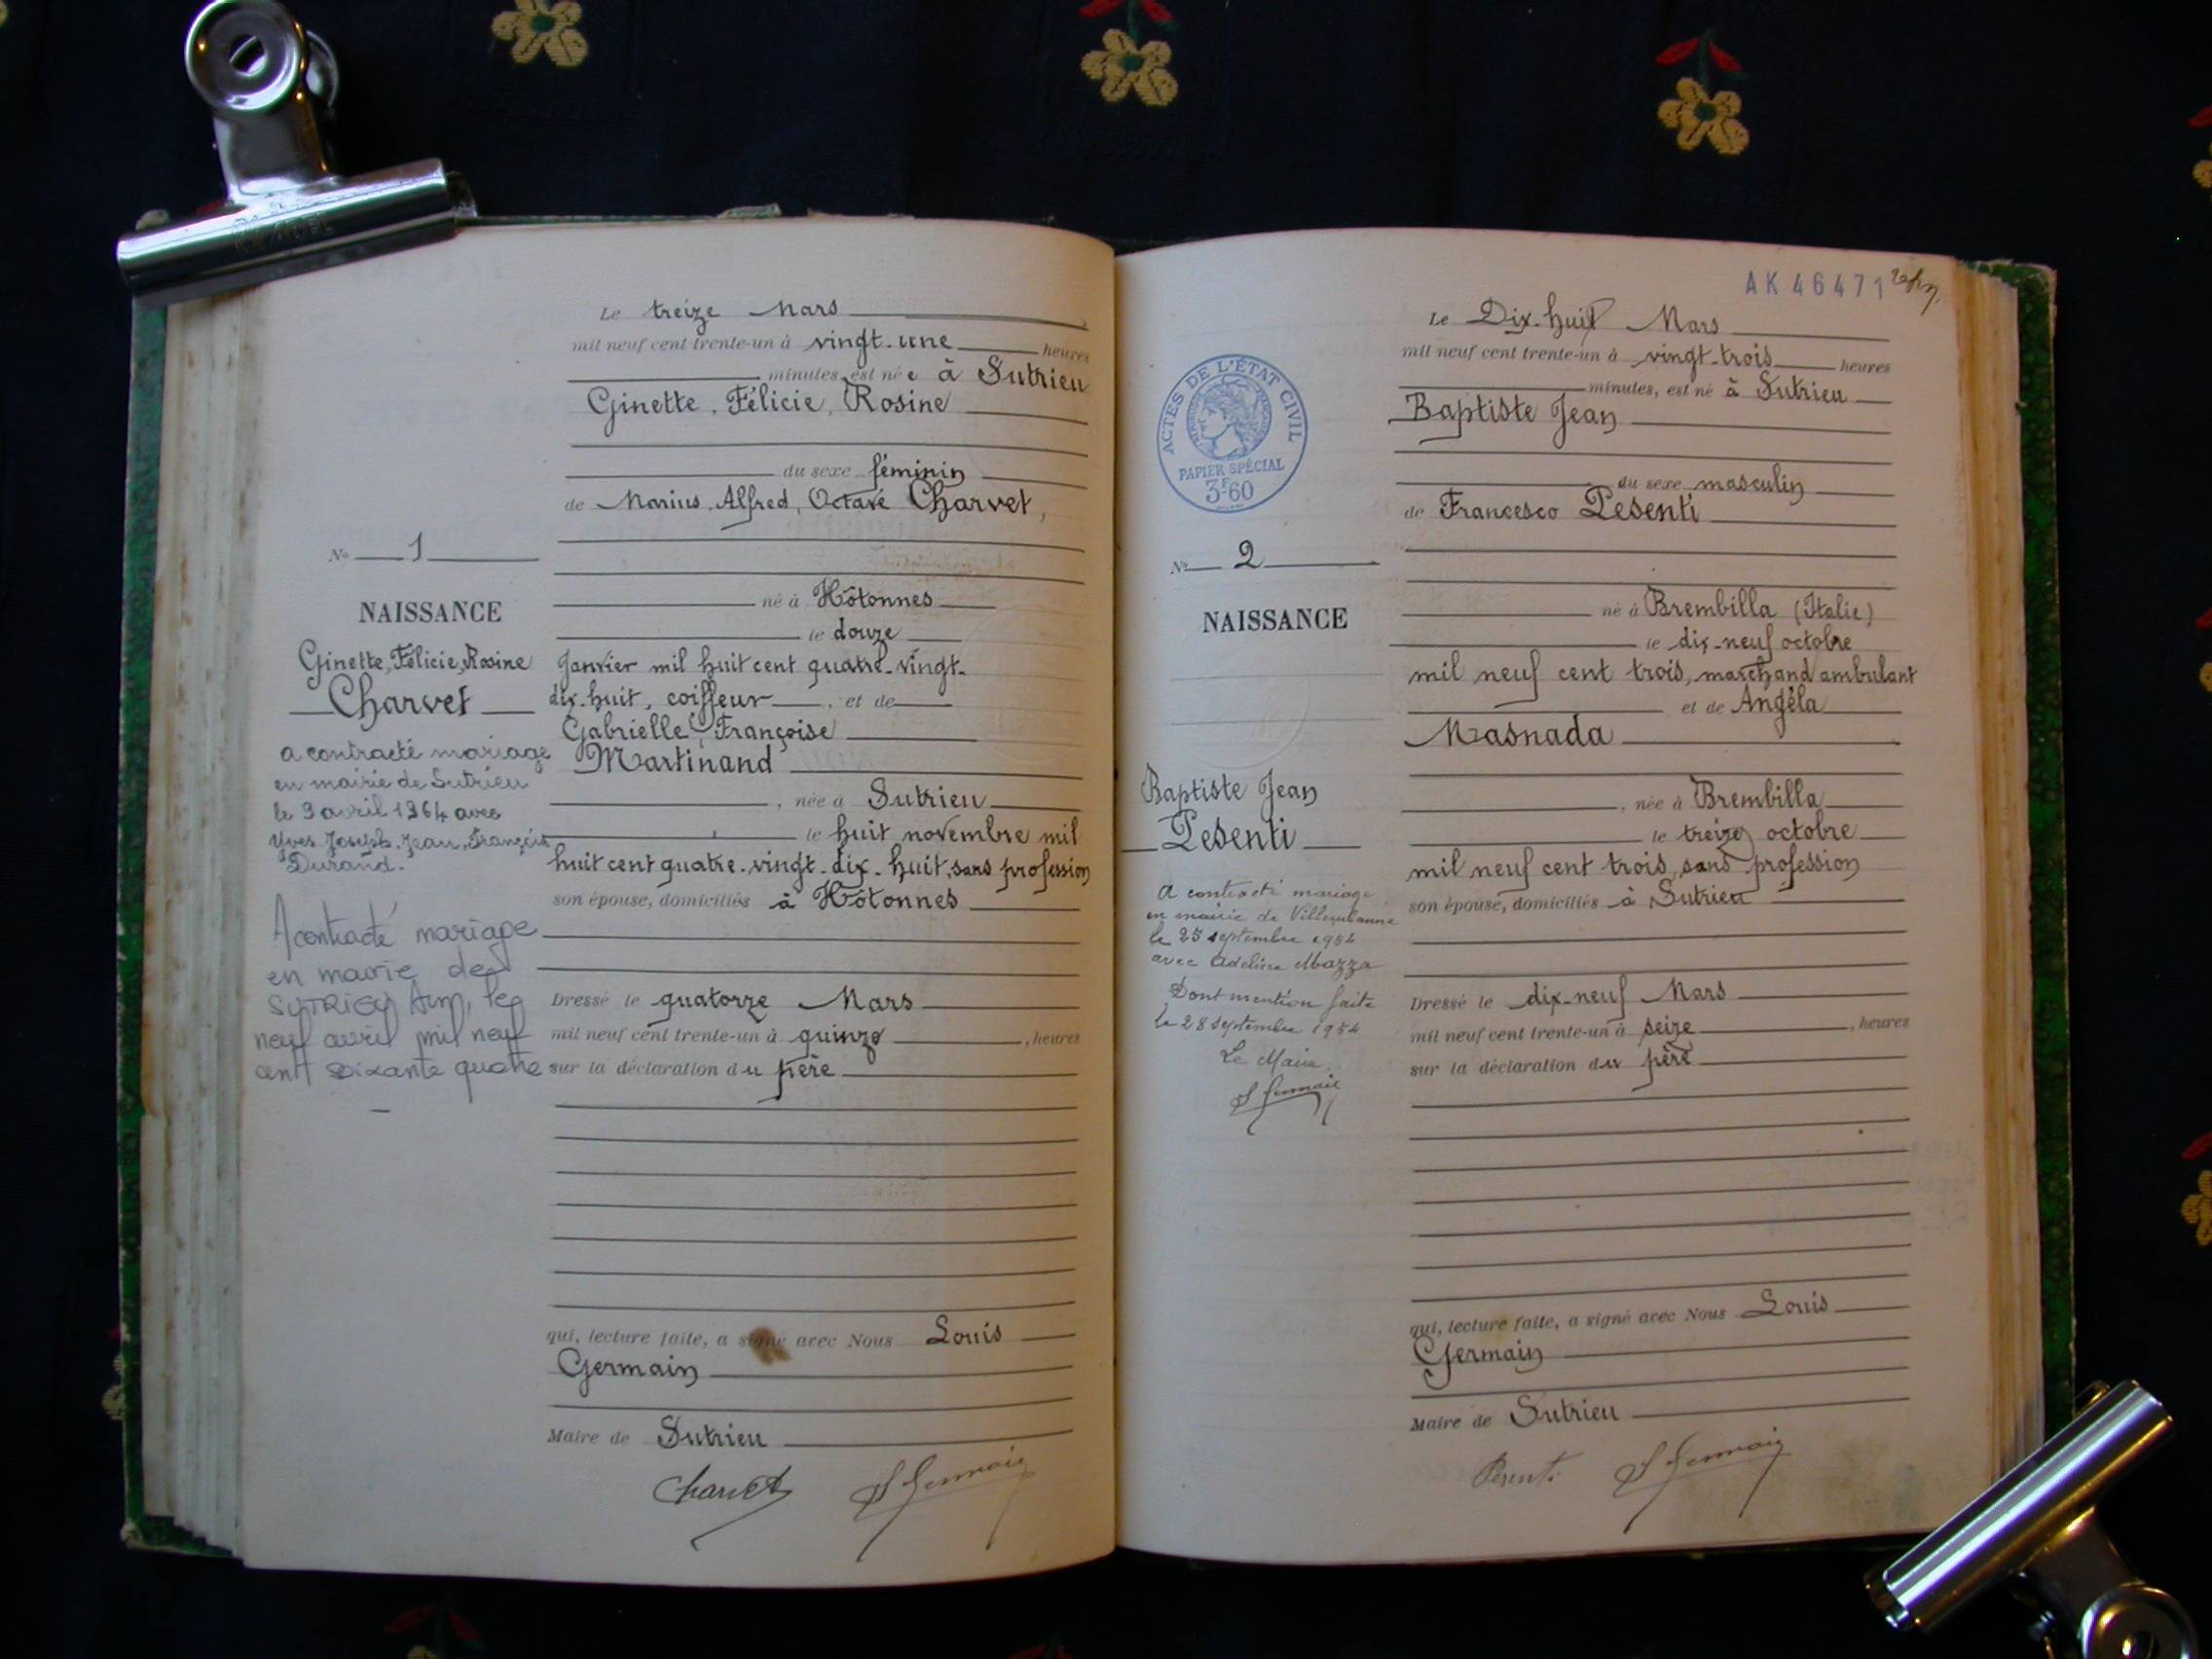 Le treize Mars
mil neuf cent trente-un à vingt-une heures
minutes, est née à Sutrieu
Ginette, Félicie, Rosine
du sexe féminin
de Marius, Alfred, Octave Charvet,
né à Hôtonnes
le douze
Janvier mil huit cent quatre-vingt-
dix-huit, coiffeur, et de
Gabrielle, Françoise
Martinand
, née à Sutrieu
le huit novembre mil
huit cent quatre-vingt-dix-huit, sans profession
son épouse, domiciliés à Hôtonnes
Dressé le quatorze Mars
mil neuf cent trente-un à quinze, heures
sur la déclaration du père
qui, lecture faite, a signé avec Nous Louis
Germain
Maire de Sutrieu
Charvet L Germain
No 1
NAISSANCE
Ginette, Félicie, Rosine
Charvet
a contracté mariage
en mairie de Sutrieu
le 9 avril 1964 avec
Yves, Joseph, Jean, François
Durand.
A contracté mariage
en mairie de
SUTRIEU Ain, le
neuf avril mil neuf
cent soixante quatre
AK 46471
Le Dix-huit Mars
mil neuf cent trente-un à vingt-trois heures
minutes, est né à Sutrieu
Baptiste Jean
du sexe masculin
de Francesco Pesenti
né à Brembilla (Italie)
le dix-neuf octobre
mil neuf cent trois, marchand ambulant
et de Angéla
Masnada
, née à Brembilla
le treize octobre
mil neuf cent trois, sans profession
son épouse, domiciliés à Sutrieu
Dressé le dix-neuf Mars
mil neuf cent trente-un à seize, heures
sur la déclaration du père
qui, lecture faite, a signé avec Nous Louis
Germain
Maire de Sutrieu
Pesenti L Germain
ACTES DE L'ÉTAT CIVIL
PAPIER SPÉCIAL
3F60
No 2
NAISSANCE
Baptiste Jean
Pesenti
A contracté mariage
en mairie de Villeurbanne
le 25 septembre 1954
avec Adeline Mazza
Dont mention faite
le 28 septembre 1954
Le Maire
L Germain